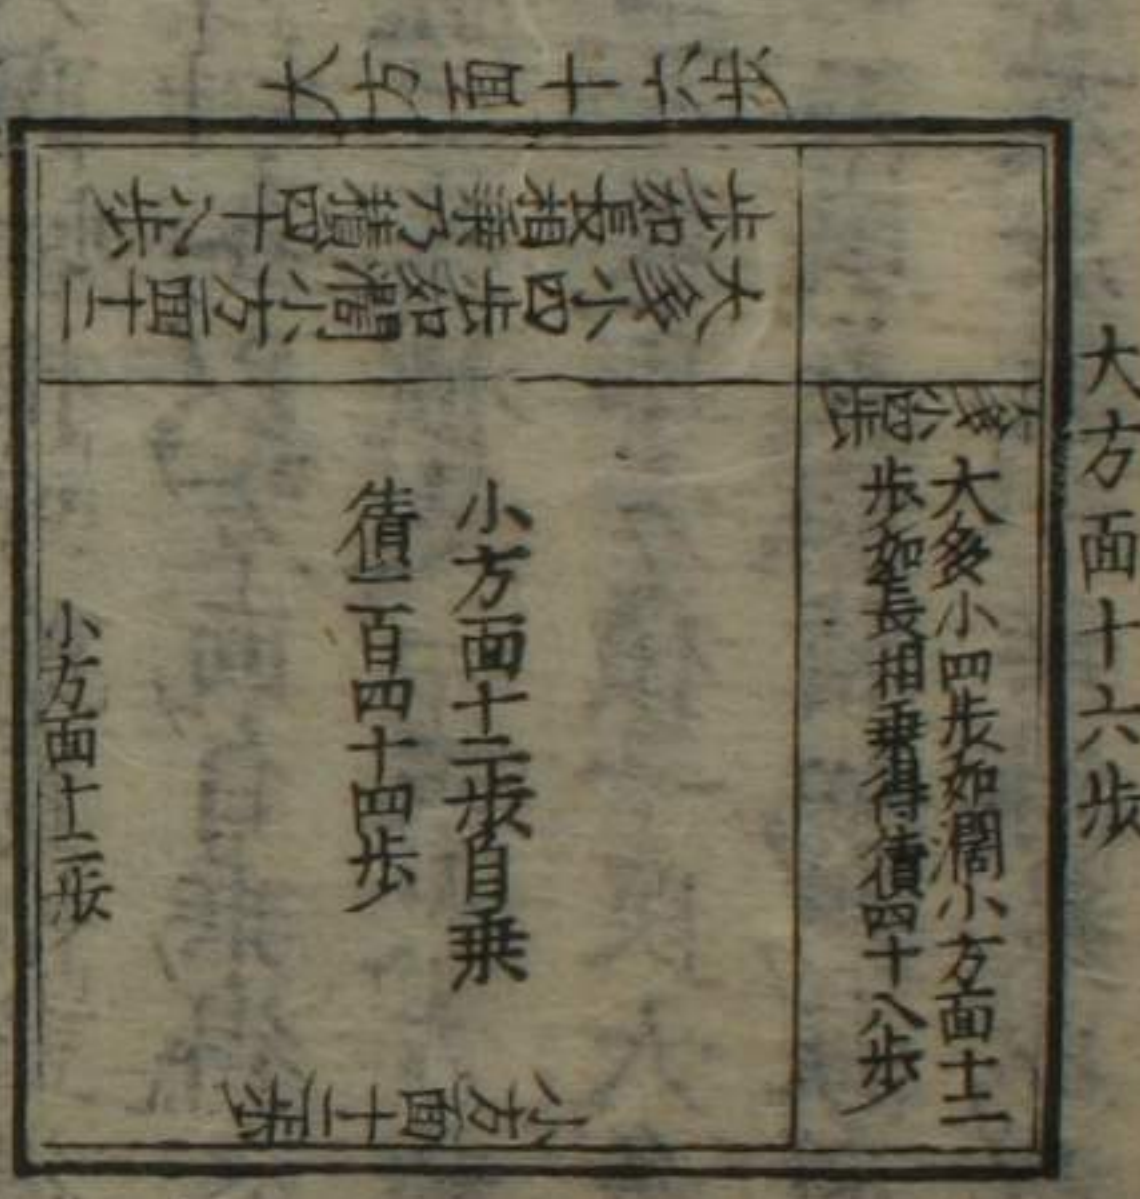 大方面十六步
大方面十六步
大多小四步
大多小四步如濶小方面十二
步如長相乗得積四十八步
大多小四步如濶小方面十二
步如長相乗乃積四十八步
小方面十二步自乗
積一百四十四步
小方面十二步
小方面十二步